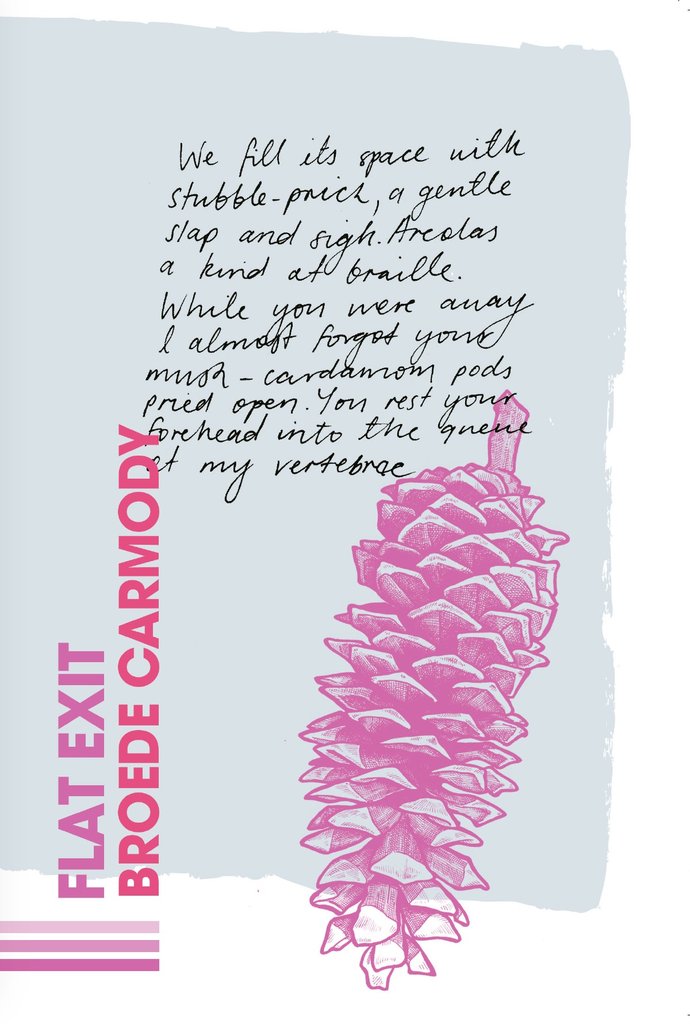 We fill its space with
stubble-prick, a gentle
slap and sigh. Areolas
a kind of braille.
While you were away
I almost forgot your
musk - cardamom pods
pried open. You rest your
forehead into the queue
of my vertebrae
FLAT EXIT
BROEDE CARMODY